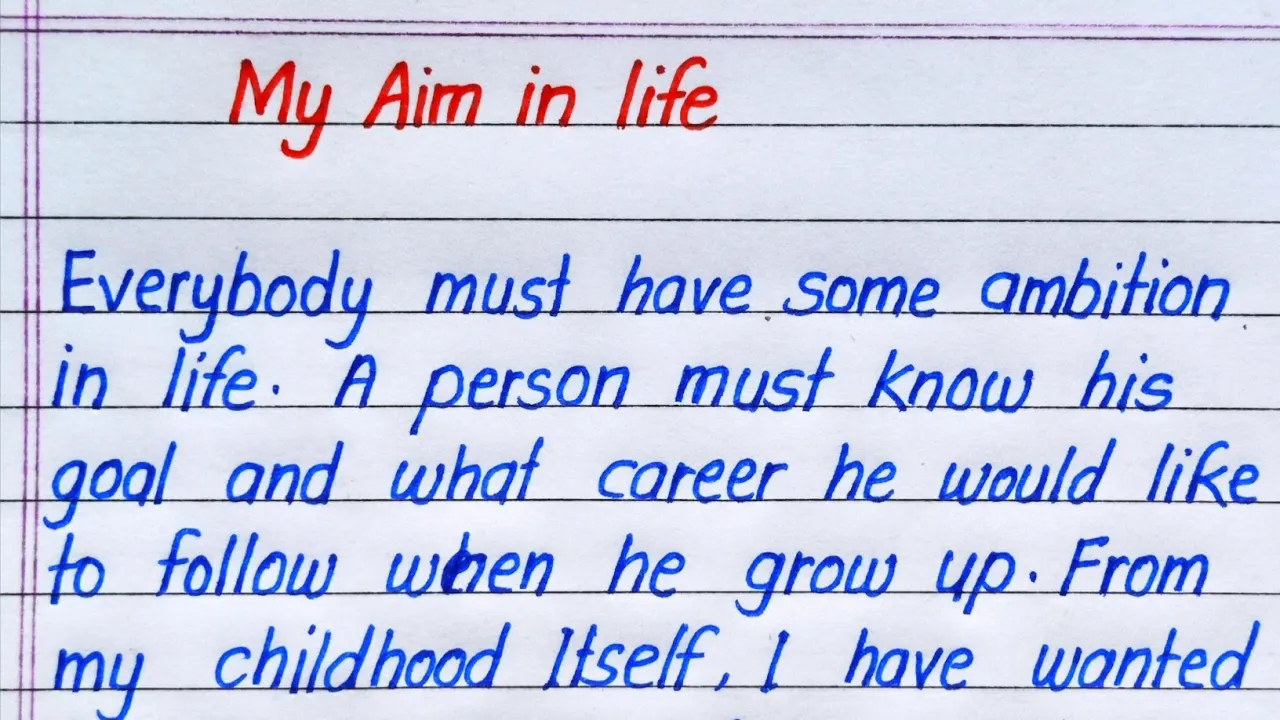 My Aim in life
Everybody must have some ambition
in life. A person must know his
goal and what career he would like
to follow when he grow up. From
my childhood Itself, I have wanted